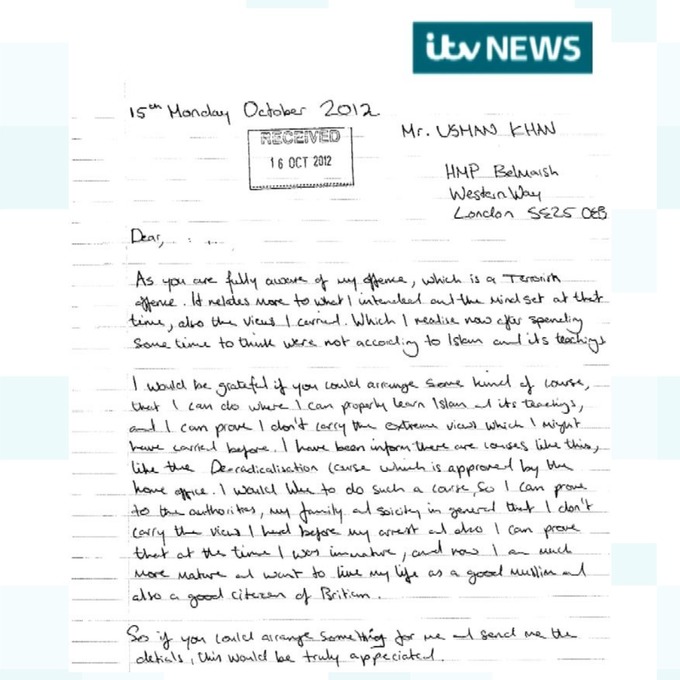 itv NEWS
15th Monday October 2012
RECEIVED
16 OCT 2012
Mr. USMAN KHAN
HMP Belmarsh
Western Way
London SE25 OEB
Dear,
As you are fully aware of my offence, which is a Terrorist
offence. It relates more to what I intended and the mind set at that
time, also the views I carried. Which I realise now after spending
some time to think were not according to Islam and its teachings
I would be grateful if you could arrange some kind of course,
that I can do where I can properly learn Islam and its teachings,
and I can prove I don't carry the extreme views which I might
have carried before. I have been inform there are courses like this,
like the Deradicalisation course which is approved by the
home office. I would like to do such a course, so I can prove
to the authorities, my family and soicity in general that I don't
carry the views I had before my arrest and also I can prove
that at the time I was immature, and now I am much
more mature and want to live my life as a good muslim and
also a good citezen of Britian.
So if you could arrange something for me and send me the
detials, this would be truly appeciated.